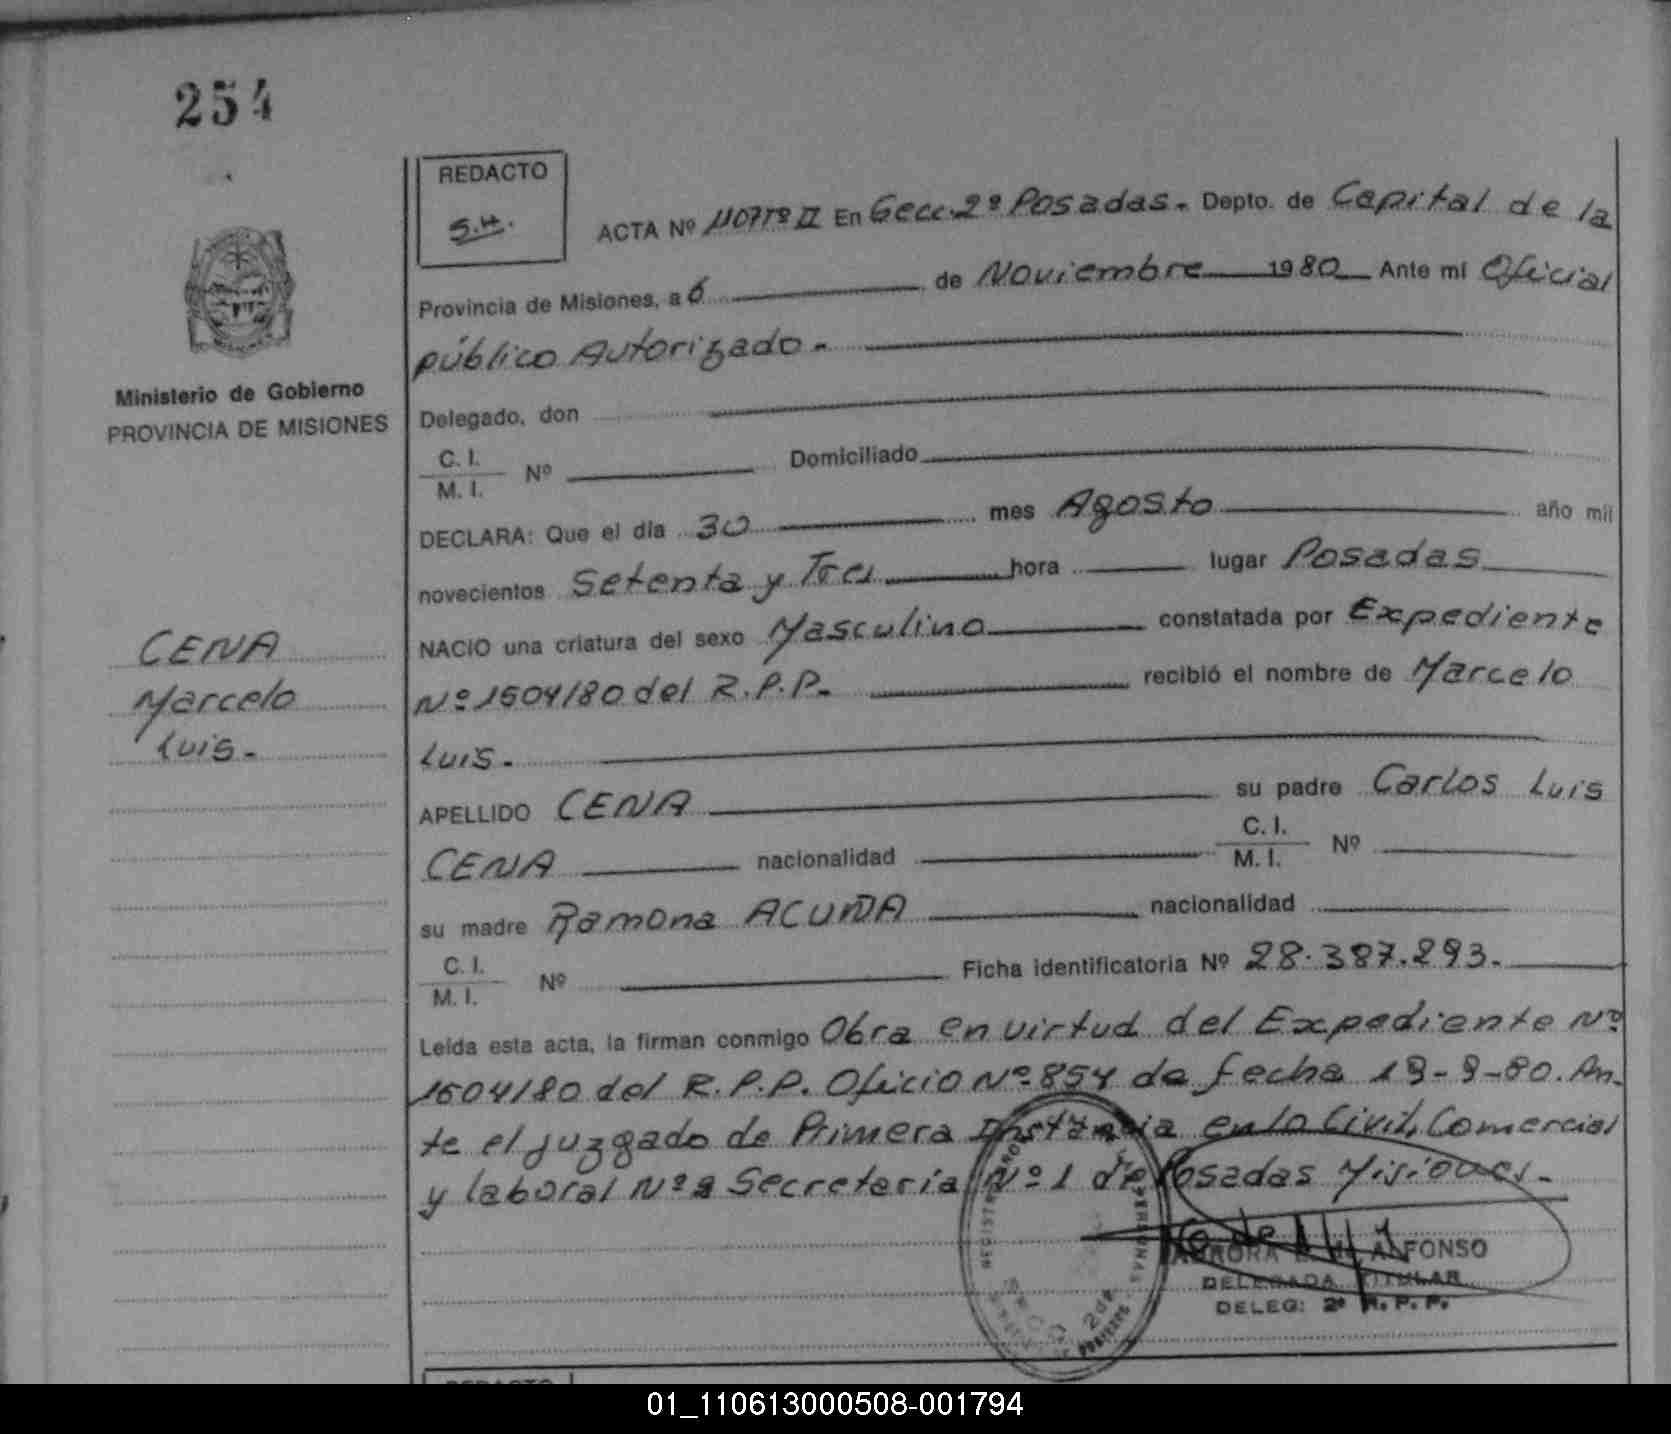 254
REDACTO
S.H.
ACTA Nº 1107Tº II En Secc. 2º Posadas. Depto. de Capital de la
Provincia de Misiones, a 6 de Noviembre 1980 Ante mi Oficial
público Autorizado.
Delegado, don
C. I.
M. I. Nº Domiciliado
DECLARA: Que el día 30 mes Agosto año mil
novecientos Setenta y Tres hora lugar Posadas
NACIO una criatura del sexo Masculino constatada por Expediente
Nº 1504/80 del R.P.P. recibió el nombre de Marcelo
Luis.
APELLIDO CENA su padre Carlos Luis
CENA nacionalidad C. I.
M. I. Nº
su madre Ramona ACUÑA nacionalidad
C. I.
M. I. Nº Ficha identificatoria Nº 28.387.293.
Leída esta acta, la firman conmigo Obra en virtud del Expediente Nº
1504/80 del R.P.P. Oficio Nº 854 de fecha 19-9-80. An-
te el juzgado de Primera Instancia en lo Civil, Comercial
y laboral Nº Secretaria Nº 1 de Posadas Misiones.
AURORA ALFONSO
DELEGADA TITULAR
DELEG: 2ª R. P. P.
Ministerio de Gobierno
PROVINCIA DE MISIONES
CENA
Marcelo
Luis.
REDACTO
01_110613000508-001794